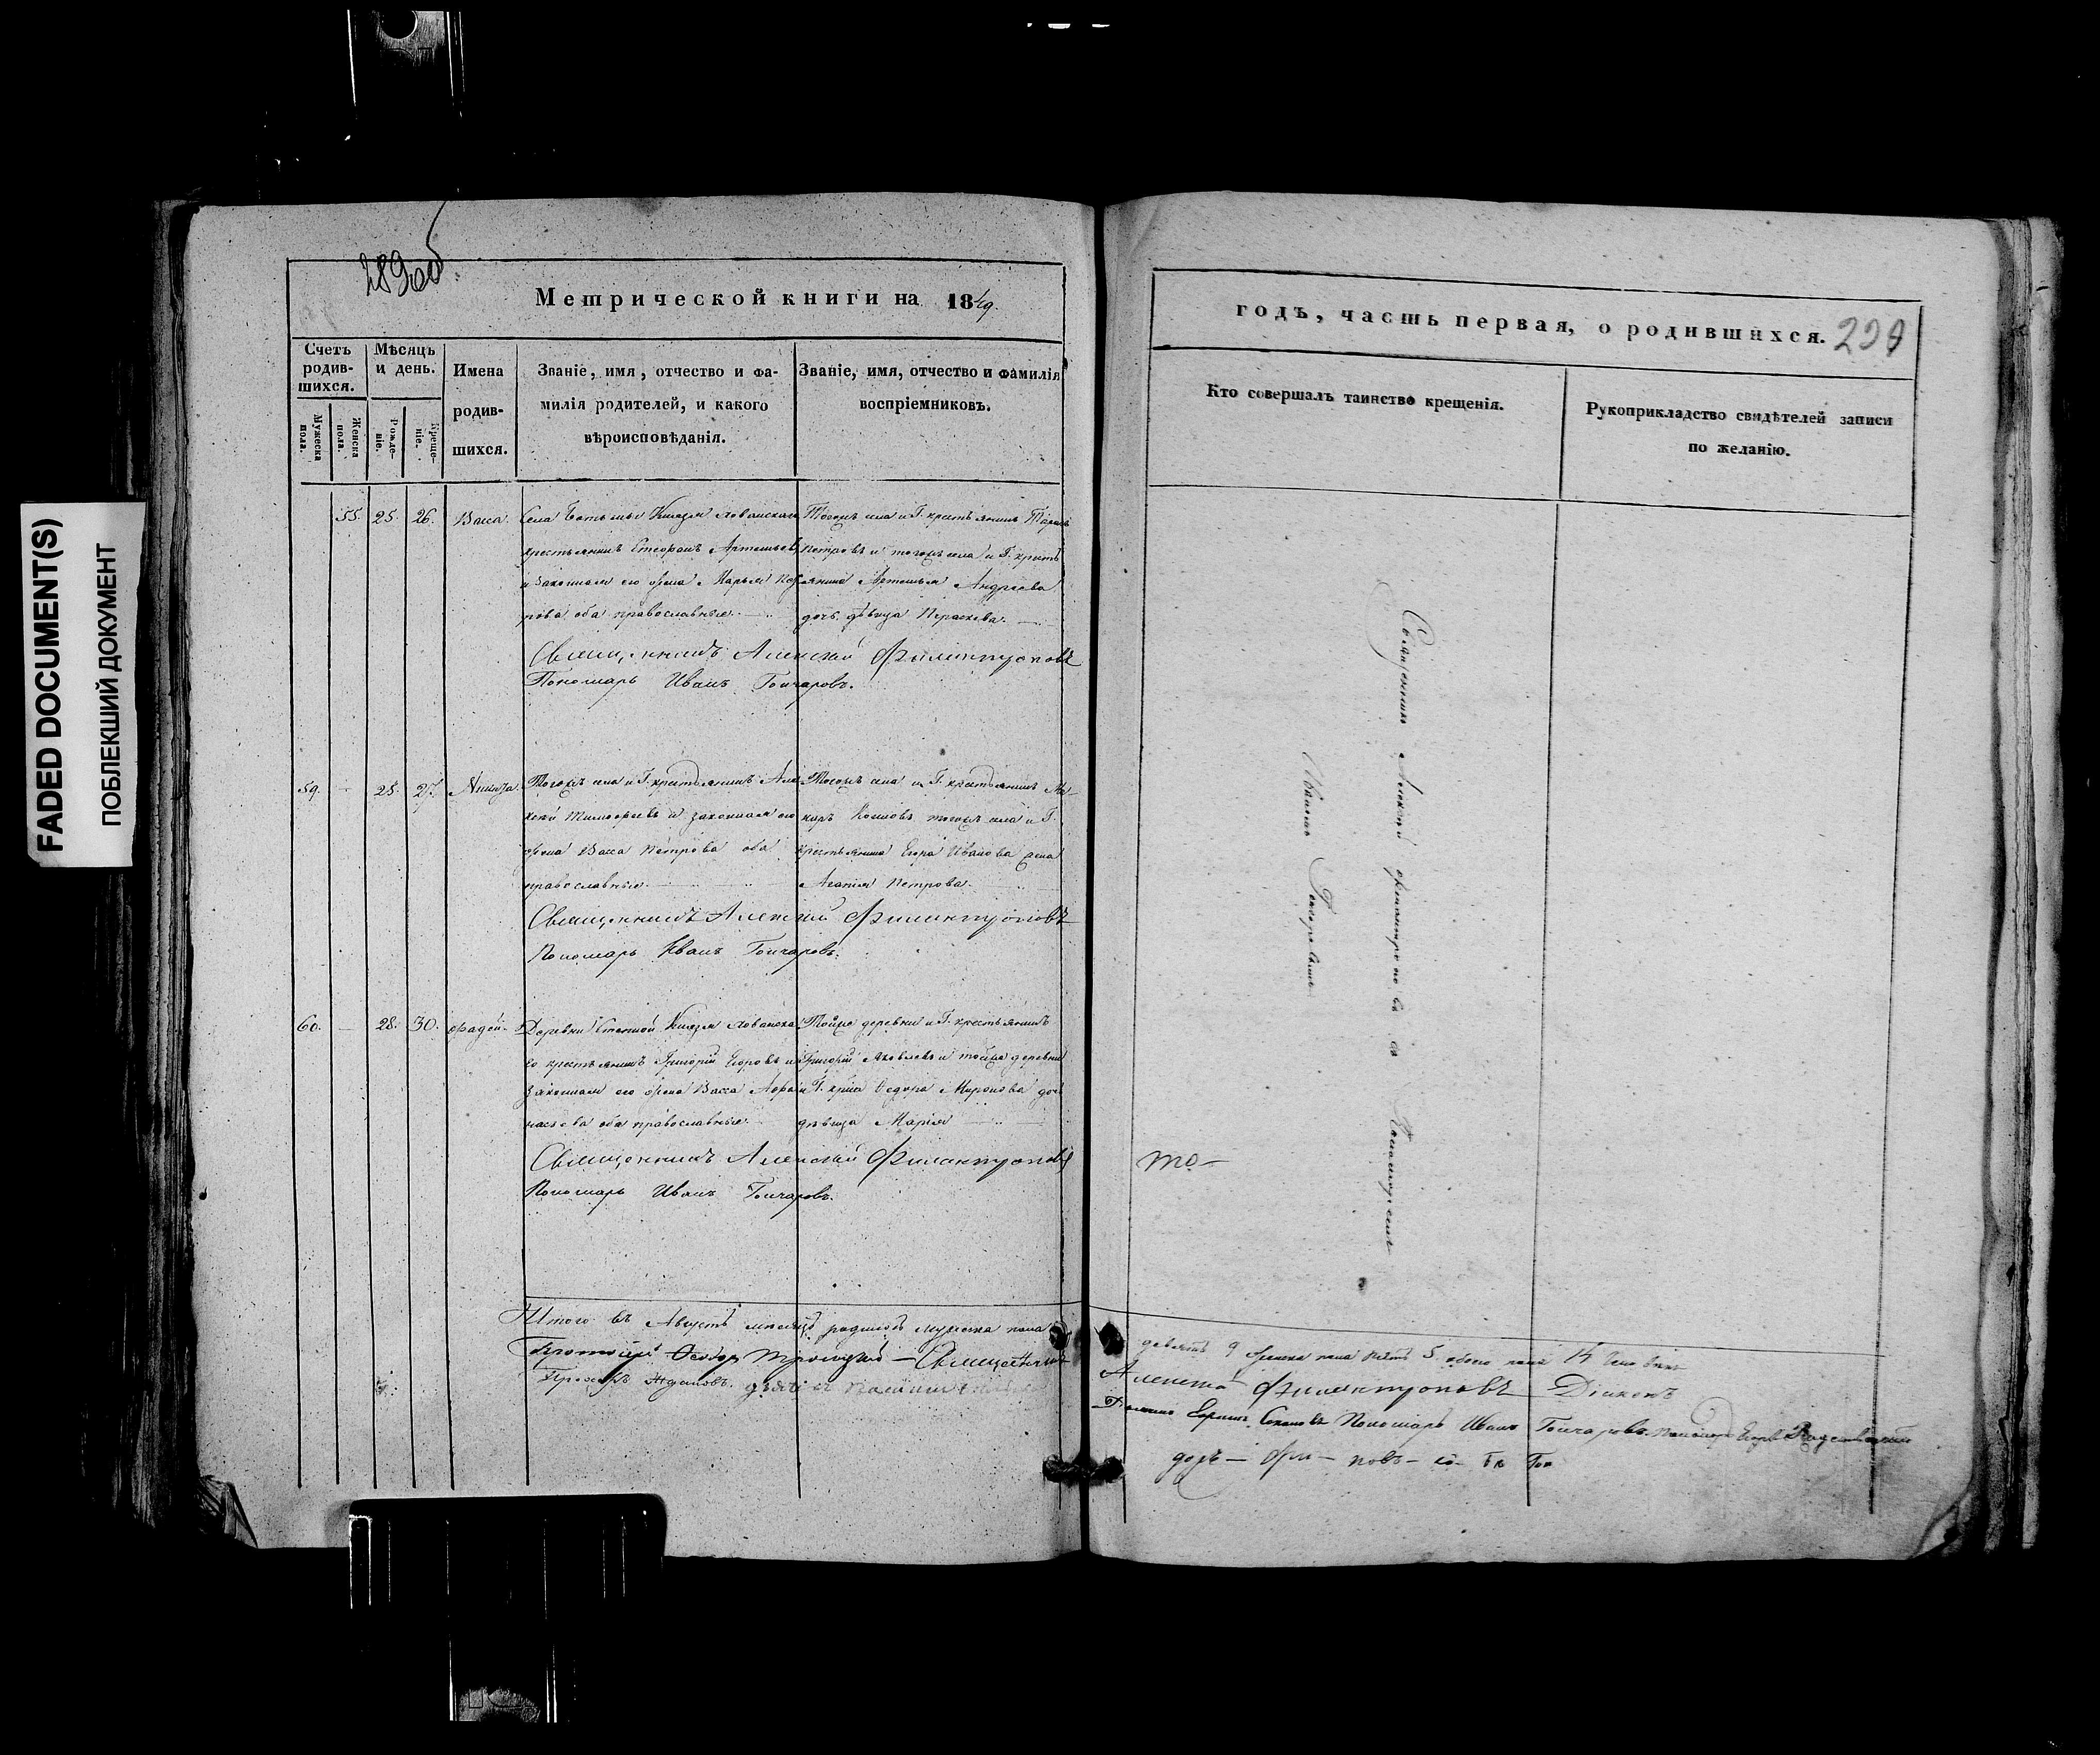 FADED DOCUMENT(S)
ПОБЛЕКШИЙ ДОКУМЕНТ
289 об
Метрической книги на 1849.
Счетъ родив-шихся.
Мужеска пола.
Женска пола.
Мѣсяцъ и день.
Рожде-ніе.
Креще-ніе.
Имена
родив-
шихся.
Званіе, имя, отчество и фа-
милія родителей, и какого
вѣроисповѣданія.
Званіе, имя, отчество и фамилія
воспріемниковъ.
55. 25. 26. Васса.
Села Князя
крестьянинъ Артемьевъ
и законная его жена Марья Пет
рова оба православные.
Тогожъ села и Г. крестьянинъ
Петровъ и тогожъ села и Г. кресть
янина Артемья Андреева
дочь дѣвица Параскева.
Священникъ Алексий Филантроповъ
Пономарь Иванъ Гончаровъ.
59. 25. 27. Никита.
Тогожъ села и Г. крестьянинъ Але
ксей Тимофеевъ и законная его
жена Васса Петрова оба
православные.
Тогожъ села и Г. крестьянинъ
тогожъ села и Г.
крестьянина Егора Иванова жена
Агапія Петрова.
Священникъ Алексий Филантроповъ
Пономарь Иванъ Гончаровъ.
60. 28. 30. Фадей.
Деревни Степной Князя
го крестьянинъ Григорій Егоровъ и
законная его жена Васса Афа
насьева оба православные.
Тойже деревни и Г. крестьянинъ
Григорій Яковлевъ и тойже деревни
и Г. Федора Миронова дочь
дѣвица Марія
Священникъ Алексий Филантроповъ
Пономарь Иванъ Гончаровъ.
Итого въ Августѣ мѣсяцѣ родилось мужеска пола
Протоіерей Феодоръ Троицкій — Священникъ
Ждановъ.
годъ, часть первая, о родившихся.
Кто совершалъ таинство крещенія.
Рукоприкладство свидѣтелей записи
по желанію.
Священникъ Алексий Филантроповъ съ Пономаремъ
Иваномъ Гончаровымъ
то-
девять 9 женска пола пять 5 обоего пола 14 человѣкъ
Алексий Филантроповъ Діаконъ
Пономарь Иванъ Гончаровъ.